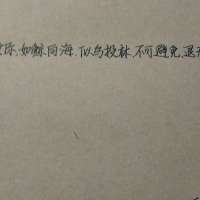 你,如鲸向海,似鸟投林,不可避免,退无